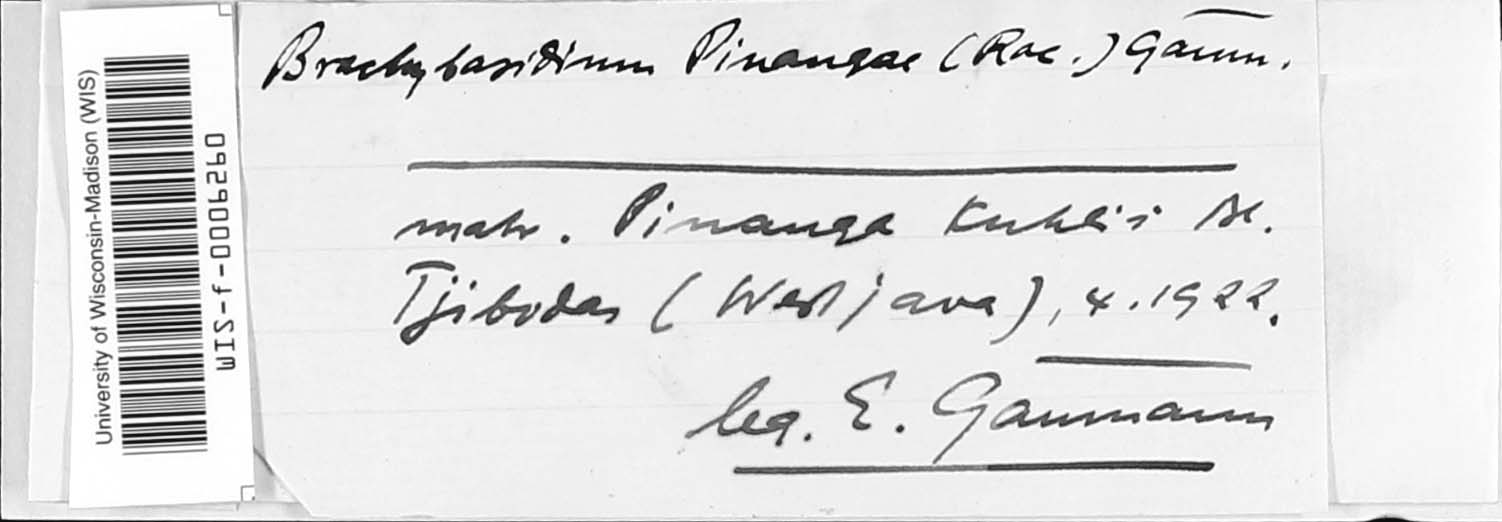 University of Wisconsin-Madison (WIS)
WIS-f-0006260
Brachybasidium Pinangae (Rac.) Gäum.
matr. Pinanga Kuhlii Bl.
Tjibodas (Westjava), 4.1922.
leg. E. Gäumann